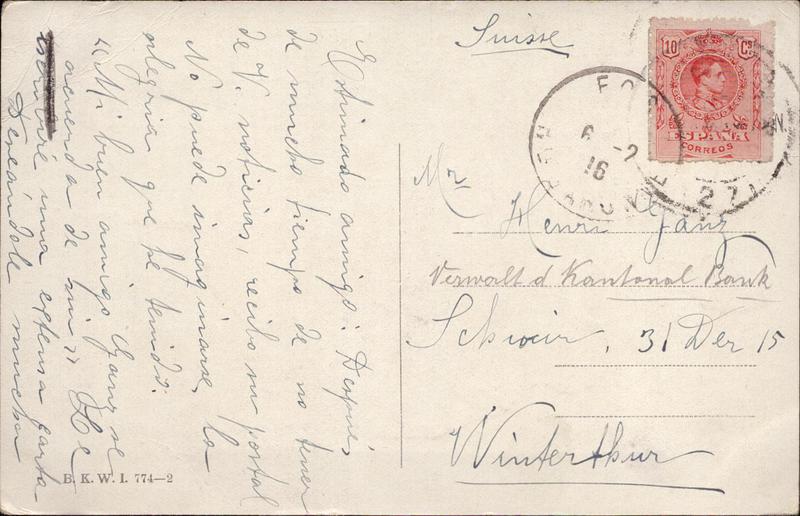 Estimado amigo: Después
de mucho tiempo de no tener
de V. noticias, recibo su postal
No puede imaginarse la
alegria que he tenido.
"Mi buen amigo Ganz se
acuerda de mi" Le
escribiré una extensa carta
Deseándole mucha
B. K. W. I. 774—2
Suisse
10 Cs
ESPAÑA
CORREOS
6 -2
16
271
Mr Henri Ganz
Verwalt d Kantonal Bank
31 Dez 15
Winterthur